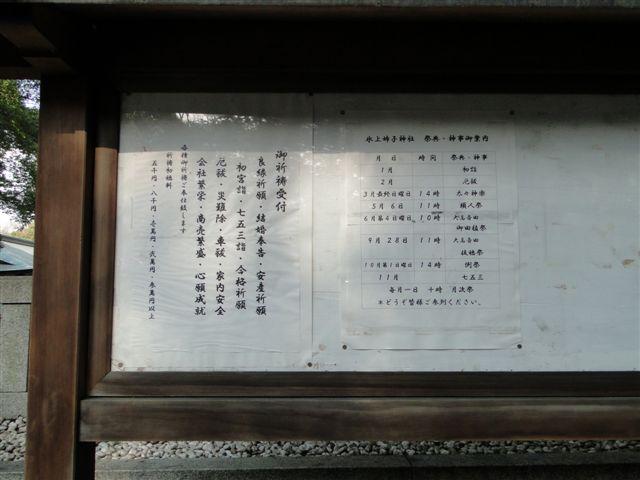 御祈祷受付
良縁祈願・結婚奉告・安産祈願
初宮詣・七五三詣・合格祈願
厄祓・災難除・車祓・家内安全
会社繁栄・商売繁盛・心願成就
各種御祈祷ご奉仕致します
祈祷初穂料
五千円・八千円・壱萬円・弐萬円・参萬円以上
氷上姉子神社 祭典・神事御案内
月 日 時間 祭典・神事
1月 初詣
2月 厄祓
3月最終日曜日 14時 太々神楽
5月6日 11時 頭人祭
6月第4日曜日 10時 大高斎田
御田植祭
9月28日 11時 大高斎田
抜穂祭
10月第1日曜日 14時 例祭
11月 七五三
毎月一日 十時 月次祭
*どうぞ皆様ご参列ください。